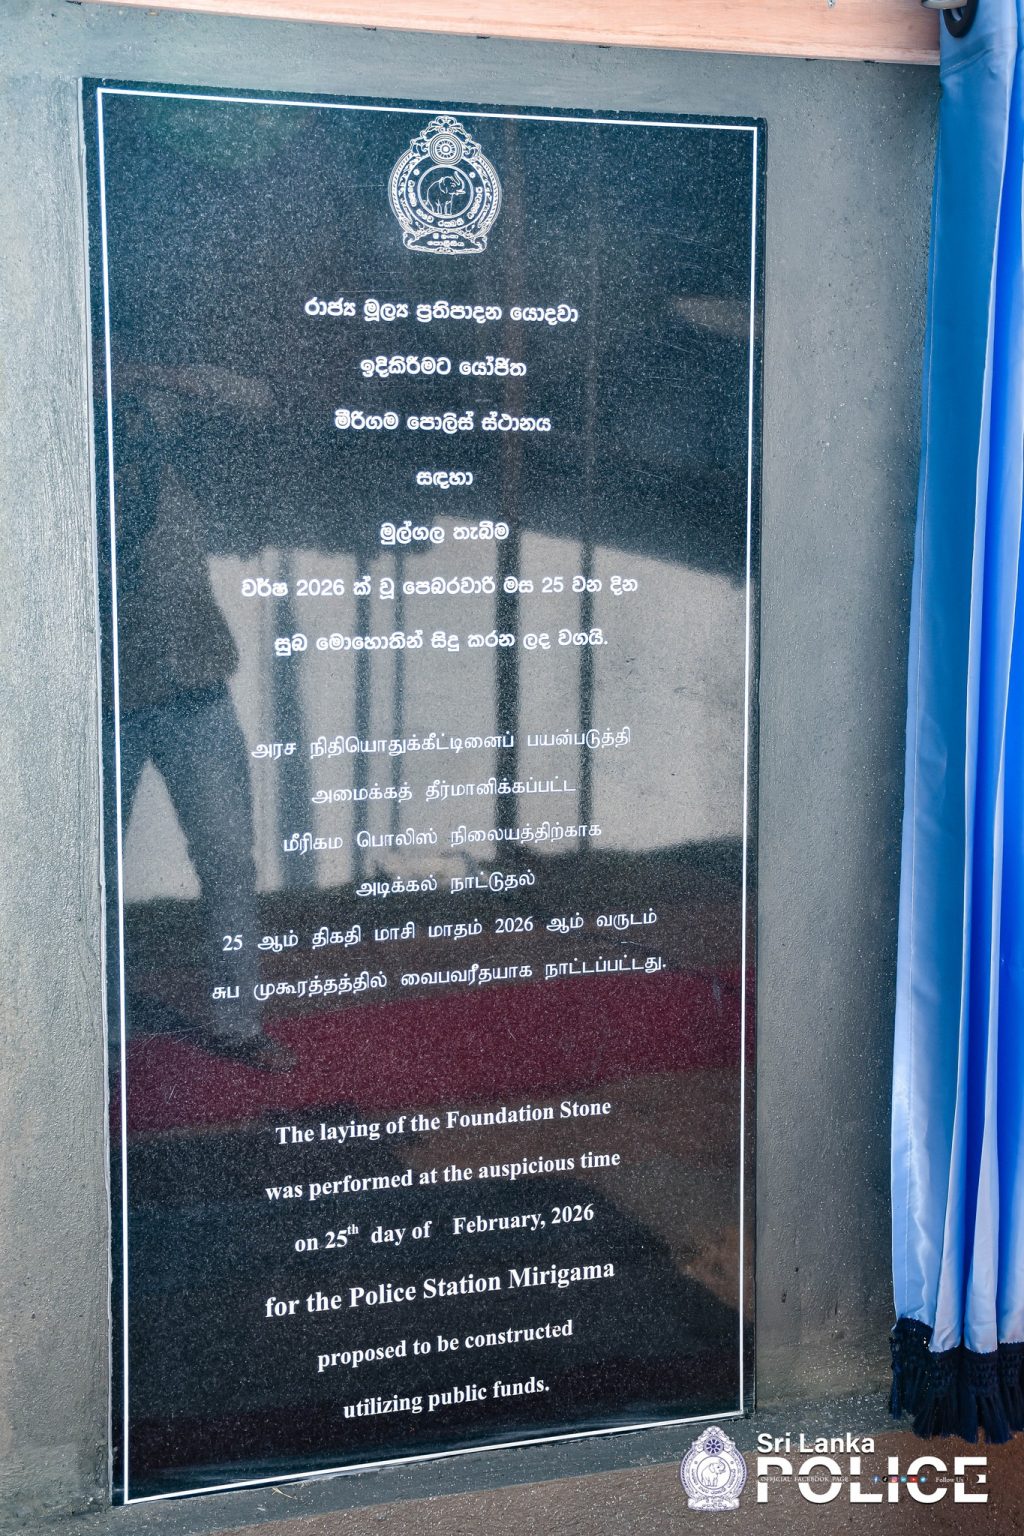 රාජ්‍ය මූල්‍ය ප්‍රතිපාදන යොදවා
ඉදිකිරීමට යෝජිත
මීරිගම පොලිස් ස්ථානය
සඳහා
මුල්ගල තැබීම
වර්ෂ 2026 ක් වූ පෙබරවාරි මස 25 වන දින
සුබ මොහොතින් සිදු කරන ලද වගයි.
அரச நிதியொதுக்கீட்டினைப் பயன்படுத்தி
அமைக்கத் தீர்மானிக்கப்பட்ட
மீரிகம பொலிஸ் நிலையத்திற்காக
அடிக்கல் நாட்டுதல்
25 ஆம் திகதி மாசி மாதம் 2026 ஆம் வருடம்
சுப முகூரத்தத்தில் வைபவரீதயாக நாட்டப்பட்டது.
The laying of the Foundation Stone
was performed at the auspicious time
on 25th day of February, 2026
for the Police Station Mirigama
proposed to be constructed
utilizing public funds.
Sri Lanka
POLICE
OFFICIAL FACEBOOK PAGE
Follow Us